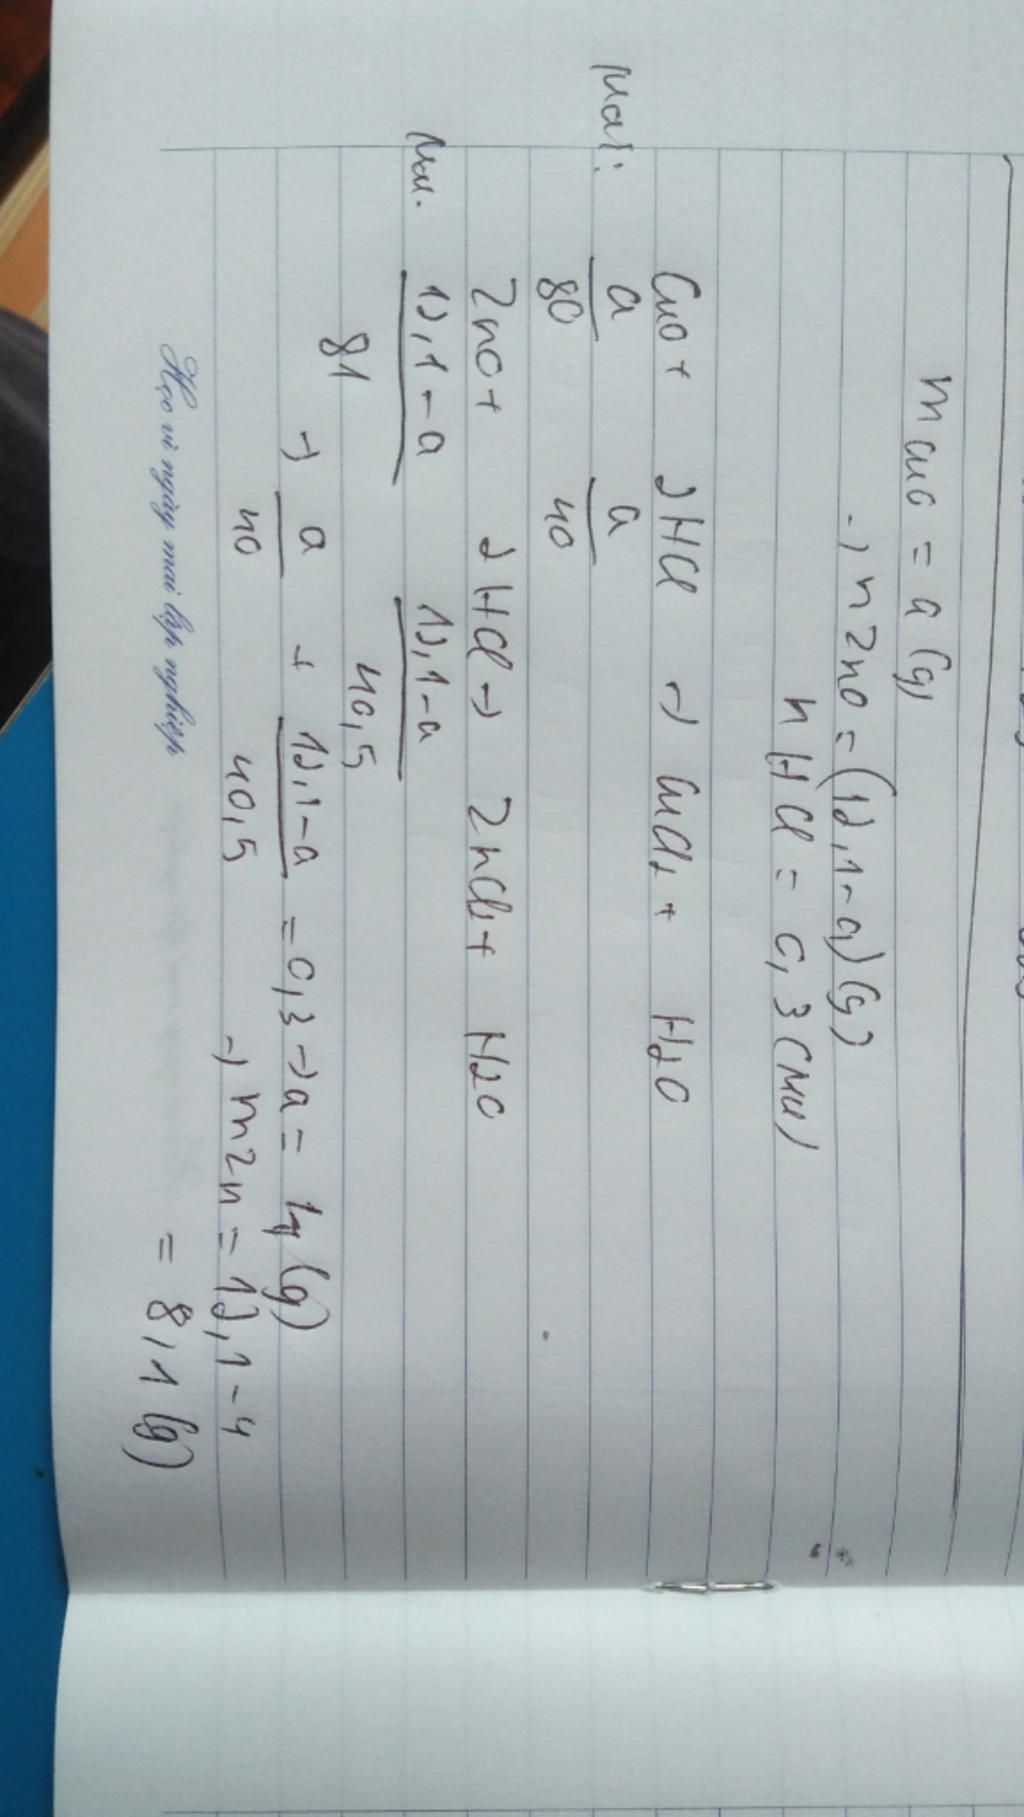 m CuO = a (g)
→ m ZnO = (12,1 - a) (g)
n HCl = 0,3 (mol)
CuO + 2HCl → CuCl2 + H2O
Mol: a/80 a/40
ZnO + 2HCl → ZnCl2 + H2O
Mol. 12,1-a/81 12,1-a/40,5
→ a/40 + 12,1-a/40,5 = 0,3 → a = 4 (g)
→ m Zn = 12,1 - 4
= 8,1 (g)
Học vì ngày mai lập nghiệp